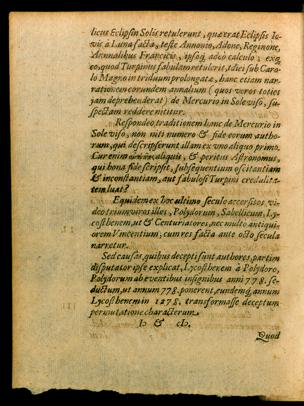 licus Eclipsin Solis retulerunt, quærat Eclipsis Io-
vis à Luna facta, teste Annonio, Adone, Reginone,
Annalibus Francicis, ipsoq́ adeo calculo; ex-
eo, quod Turpinus fabulam retulerit, & dici sub Caro-
lo Magno in triduum prolongatæ, hanc etiam nar-
rationem eorundem annalium (quos veros toties
jam deprehenderat) de Mercurio in Sole viso, su-
spectam reddere nititur.
Respondeo: traditionem hanc de Mercurio in
Sole viso, non niti numero & fide eorum autho-
rum, qui descripserunt illam ex uno aliquo primo.
Cur enim aliquis, & peritus Astronomus,
qui bona fide scripsit, subsequentium oscitantiam
& inconstantiam, aut fabulosi Turpini credulita-
tem luat?
Equidem ex hoc ultimo seculo accersitos vi-
deo trium viros illos, Polydorum, Sabellicum, Ly-
costhenem, ut & Centuriatores, nec multo antiqui-
orem Vincentium; cum res facta ante octo secula
narretur.
Sed causas, quibus decepti sunt authores, partim
disputator ipse explicat, Lycosthenem à Polydoro,
Polydorum ab eventibus insignibus anni 778. se-
ductum, ut annum 778. ponerent, eundemq́, annum
Lycosthenem in 1278. transformasse deceptum
permutatione characterum
&
Quod